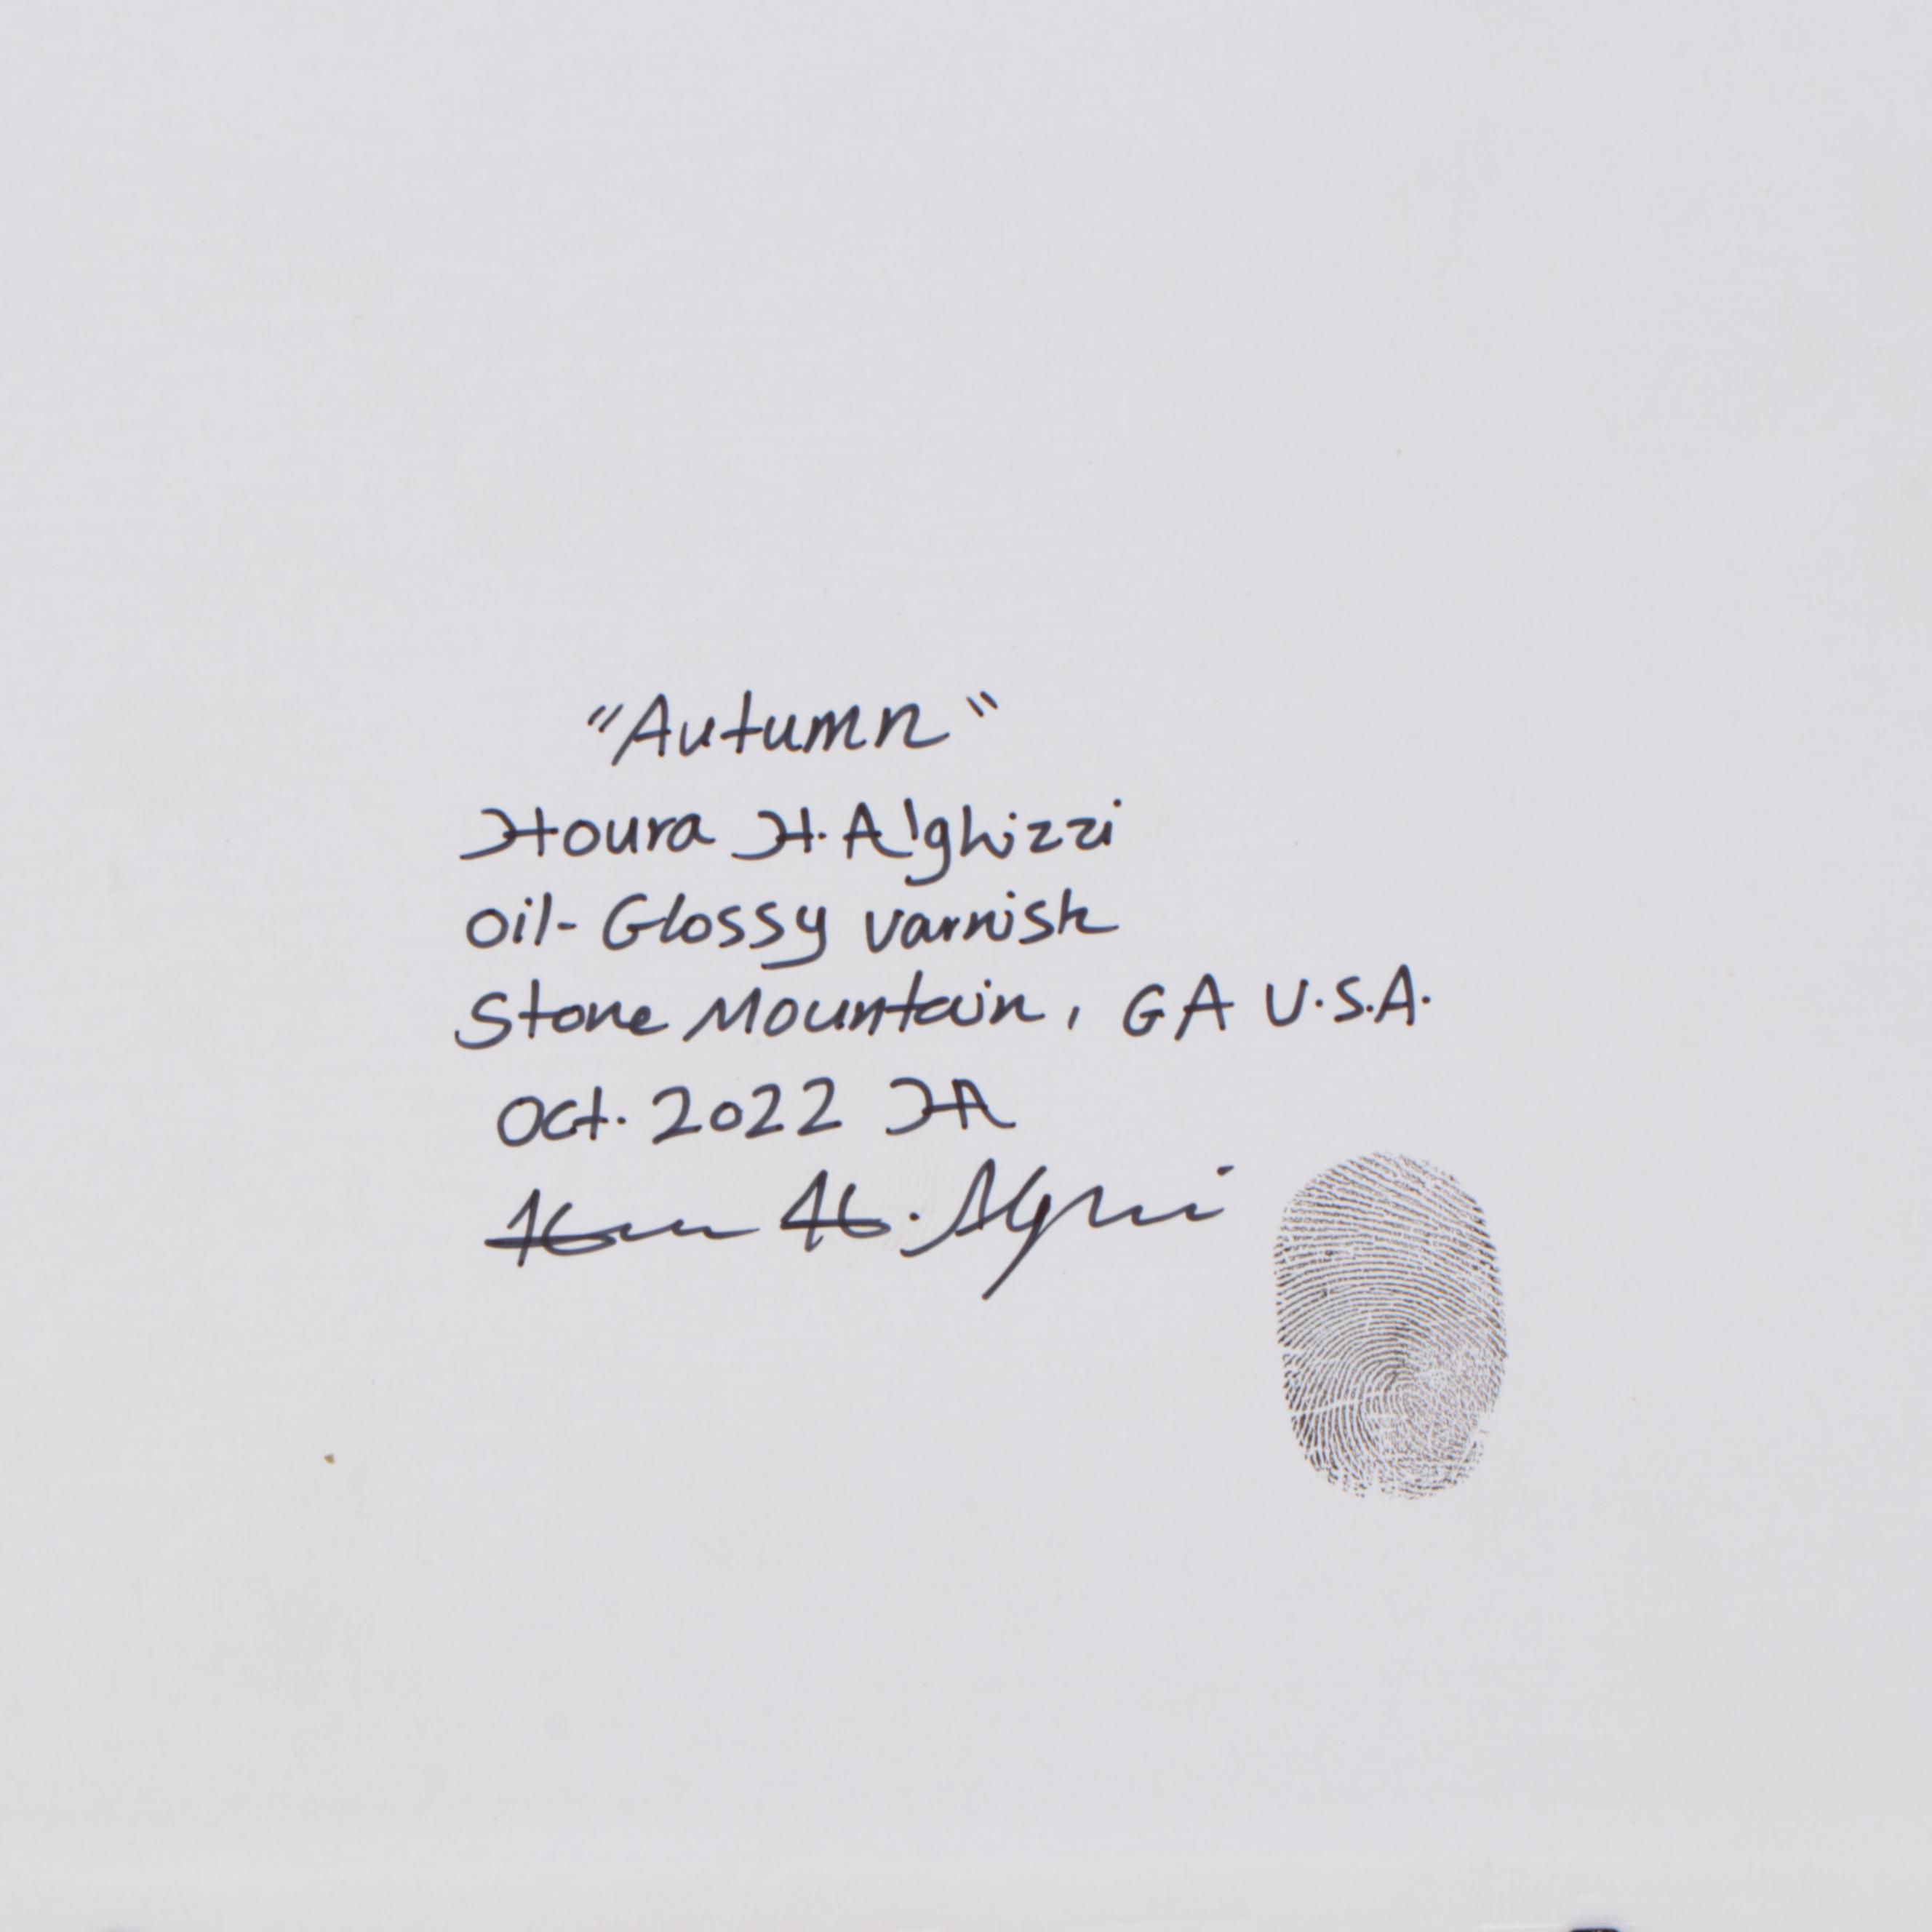 "Autumn"
Houra H. Alghizzi
Oil- Glossy varnish
Stone Mountain, GA U.S.A.
Oct. 2022 HA